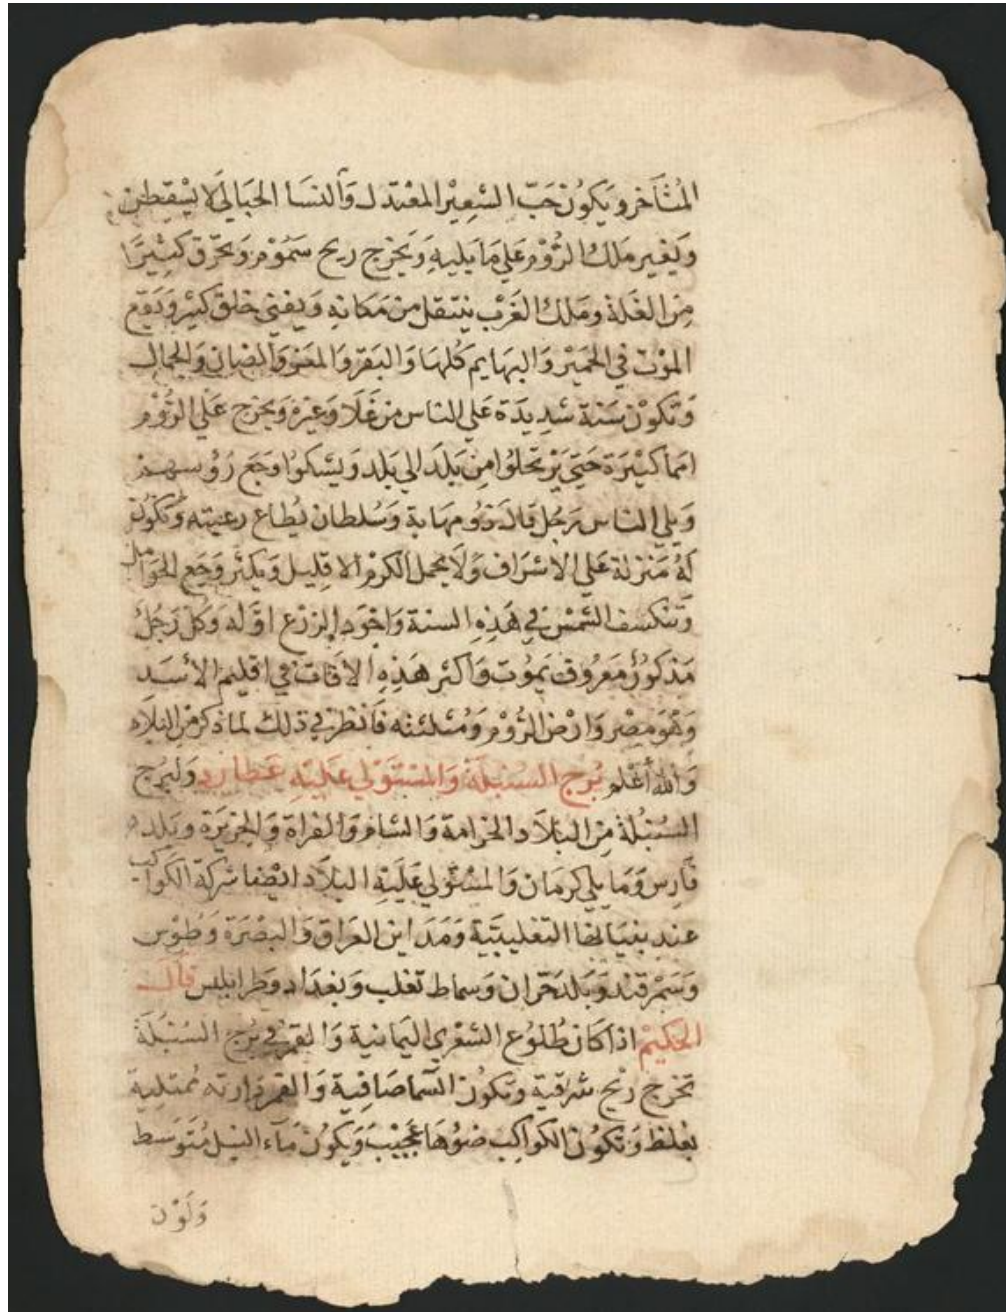 المُتَأخر وَيَكوُن حَبّ الشعِيْر المعْتدل وَالنسَا الحَبَالي لَا يسْقِطن
وَيغير مَلك الرُوْم عَلي مَا يَليهِ وَيَخْرج ريح سَمُوْم وَيَحرّق كثيْرًا
مِن الغَلة ومَلك الغَرْب ينتقل من مَكانهِ وَيفني خلق كثير وَيَقع
المَوْت في الحَمِيْر وَالبهايم كُلهَا وَالبَقر وَالمعَز وَالضَان وَالجمال
وَتكوُنْ سَنة شدِيدَة عَلي الناس من غَلا وَغيره وَيخرج عَلي الرُوْم
امما كثيْرَة حَتي يَرْتحلوُا مِن بَلَد الي بَلد وَيشكوُا وَجَع رَؤسهم
وَيلي الناس رَجُل قَال ذوُ مهَابة وَسُلطان يُطاع رعيته وَتكوُن
لهُ مَنزلة عَلي الاشرَاف وَلَا يحمل الكرْم الا قليل وَيكثر وَجَع الحَوَامل
وَتنكسف الشمْس في هَذِهِ السنة وَاجْوَد الزرْع اوّله وَكل رَجُل
مَذكوُرْ مَعرُوف يَموُت وَاكثر هَذِهِ الافات في اقليم الاسَد
وَهُوَ مصْر وَارْض الرُوْم وَمُثلثته فَانظر في ذلك لما ذكر من البلَاد
وَالله أعْلم بُرج السُنبلَة وَالمسْتَوْلي عَليْهِ عَطارد وَلبرج
السُنبُلة مِن البلاَد الخرامة وَالشام وَالفرَاة وَالجزيَرة وَبَلد
فَارِس وَمَا يلي كرمَان وَالمسْتَولي عَليْهِ البلَاد ايْضا شركة الكوَاكب
عند بنيَانها التغليبَية وَمَدَاين العرَاق وَالبصْرَة وَطوُس
وَسَمْرقند وَبَلد حَرّان وَسماط تغلب وَبغدَاد وَطرابلس قال
الحَكيْم اذا كَان طُلوُع الشعْري اليَمانية وَالقمر في برْج السُنبلَة
تخرج ريْح شرقية وتكوُن السَما صَافيَة وَالقمر دَارته مُمتلية
بغلظ وَتكوُن الكوَاكِب ضوُهَا عَجيْبْ وَيكوُن مَآء النيل مُتوَسط
وَلَوْن